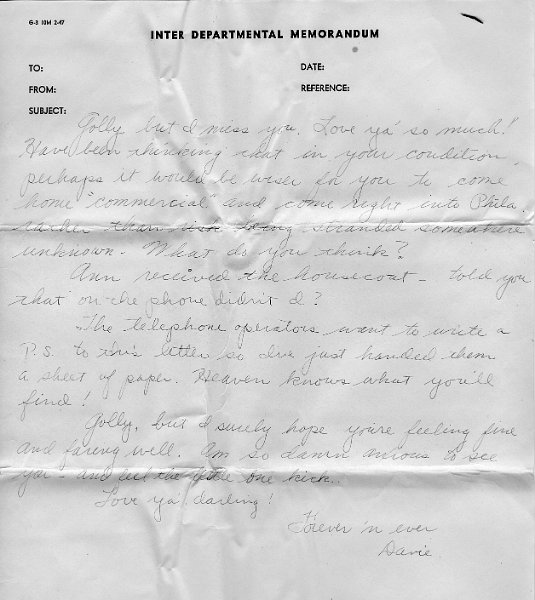 G-3 10M 2-47
INTER DEPARTMENTAL MEMORANDUM
TO: DATE:
FROM: REFERENCE:
SUBJECT:
Golly but I miss you. Love ya' so much!!
Have been thinking that in your condition,
perhaps it would be wiser for you to come
home "commercial" and come right into Phila
rather than risk being stranded somewhere
unknown. What do you think?
Ann received the housecoat - told you
that on the phone didn't I?
The telephone operators want to write a
P.S. to this letter so I've just handed them
a sheet of paper. Heaven knows what you'll
find!
Golly, but I surely hope you're feeling fine
and faring well. Am so damn anious to see
you - and feel the little one kick.
Love ya' darling!
Forever 'n ever
Davie